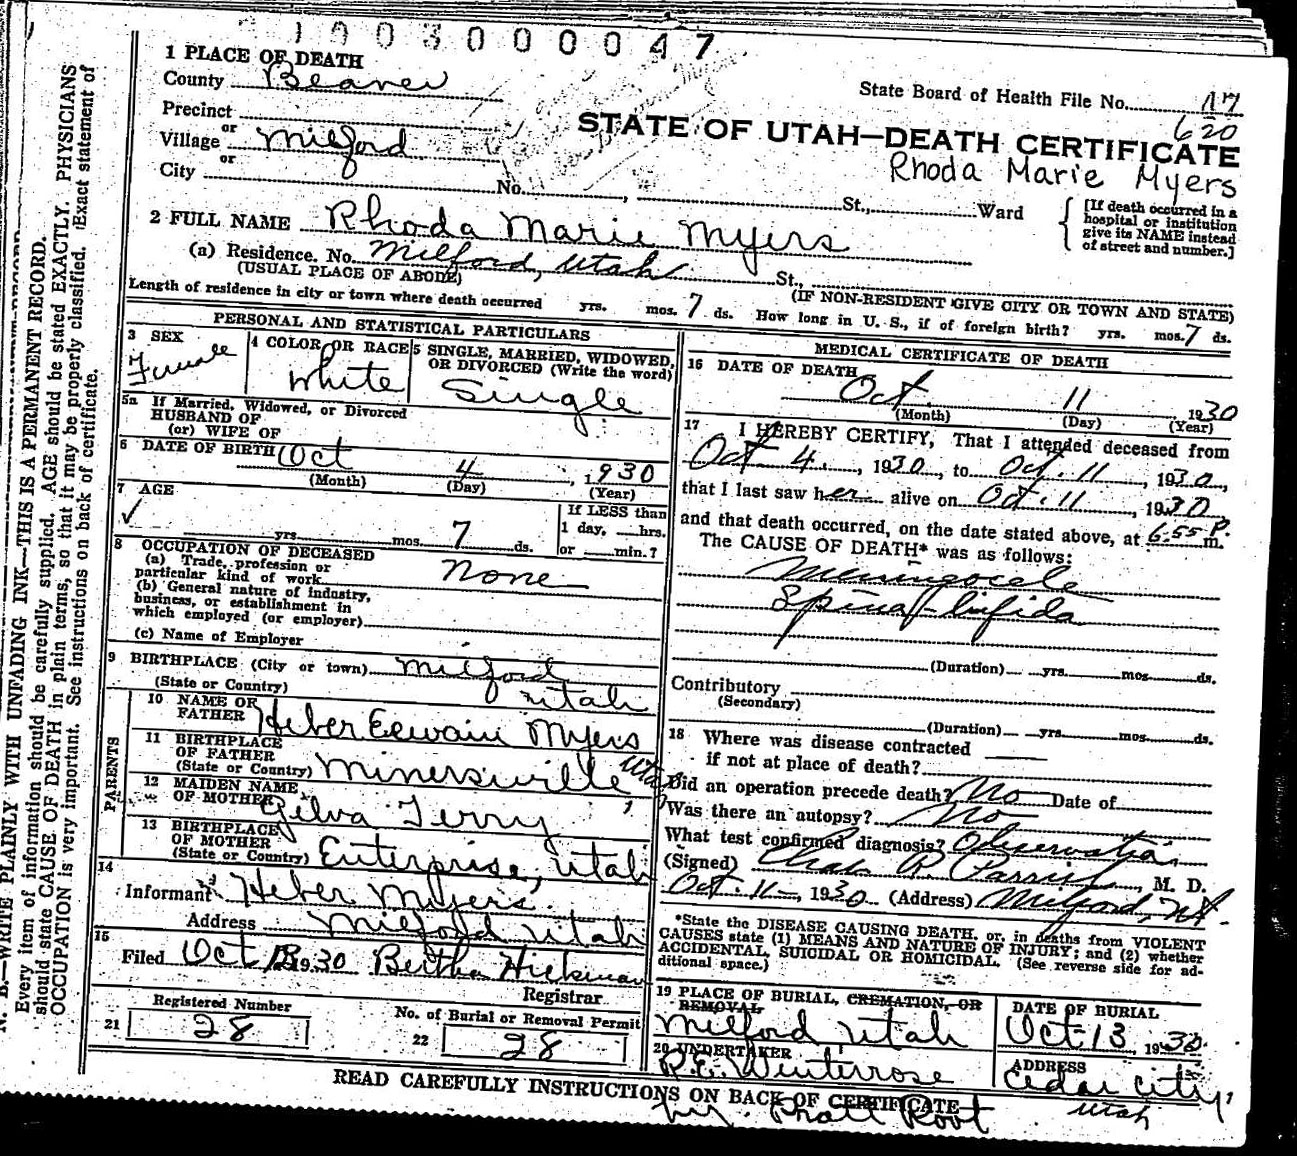 1903000047
1 PLACE OF DEATH
County Beaver
State Board of Health File No. 47
620
Precinct
or
Village Milford
or
City
STATE OF UTAH—DEATH CERTIFICATE
Rhoda Marie Myers
No. , St., Ward
[If death occurred in a hospital or institution give its NAME instead of street and number.]
2 FULL NAME Rhoda Marie Myers
(a) Residence. No. Milford, Utah St.,
(USUAL PLACE OF ABODE) (IF NON-RESIDENT GIVE CITY OR TOWN AND STATE)
Length of residence in city or town where death occurred yrs. mos. 7 ds. How long in U. S., if of foreign birth? yrs. mos. 7 ds.
PERSONAL AND STATISTICAL PARTICULARS
3 SEX
Female
4 COLOR OR RACE
White
5 SINGLE, MARRIED, WIDOWED, OR DIVORCED (Write the word)
Single
5a If Married, Widowed, or Divorced
HUSBAND OF
(or) WIFE OF
6 DATE OF BIRTH Oct 4, 1930
(Month) (Day) (Year)
7 AGE
✓ yrs. mos. 7 ds.
If LESS than
1 day, hrs.
or min.?
8 OCCUPATION OF DECEASED
(a) Trade, profession or
particular kind of work None
(b) General nature of industry,
business, or establishment in
which employed (or employer)
(c) Name of Employer
9 BIRTHPLACE (City or town) Milford
(State or Country) Utah
PARENTS
10 NAME OF
FATHER Heber Myers
11 BIRTHPLACE
OF FATHER
(State or Country) Minersville, Utah
12 MAIDEN NAME
OF MOTHER Terry
13 BIRTHPLACE
OF MOTHER
(State or Country) Enterprise, Utah
14
Informant Heber Myers
Address Milford Utah
15
Filed Oct 13 1930 Bertha Hickman
Registrar
Registered Number
21 28
No. of Burial or Removal Permit
22 28
MEDICAL CERTIFICATE OF DEATH
16 DATE OF DEATH
Oct. 11 1930
(Month) (Day) (Year)
17 I HEREBY CERTIFY, That I attended deceased from
Oct 4, 1930, to Oct. 11, 1930,
that I last saw her alive on Oct. 11, 1930
and that death occurred, on the date stated above, at 6:55 P. m.
The CAUSE OF DEATH* was as follows:
Meningocele
Spina-bifida
(Duration) yrs. mos. ds.
Contributory
(Secondary)
(Duration) yrs. mos. ds.
18 Where was disease contracted
if not at place of death?
Did an operation precede death? No Date of
Was there an autopsy? No
What test confirmed diagnosis? Observation
(Signed) Chas R. Parrish, M. D.
Oct. 11, 1930 (Address) Milford, Ut.
*State the DISEASE CAUSING DEATH, or, in deaths from VIOLENT
CAUSES state (1) MEANS AND NATURE OF INJURY; and (2) whether
ACCIDENTAL, SUICIDAL OR HOMICIDAL. (See reverse side for ad-
ditional space.)
19 PLACE OF BURIAL, CREMATION, OR
REMOVAL
Milford Utah
DATE OF BURIAL
Oct 13, 1930
20 UNDERTAKER
R.E. Winterrose
by Root
ADDRESS
Cedar City,
Utah
READ CAREFULLY INSTRUCTIONS ON BACK OF CERTIFICATE
N. B.—WRITE PLAINLY WITH UNFADING INK—THIS IS A PERMANENT RECORD.
Every item of information should be carefully supplied. AGE should be stated EXACTLY. PHYSICIANS
should state CAUSE OF DEATH in plain terms, so that it may be properly classified. Exact statement of
OCCUPATION is very important. See instructions on back of certificate.